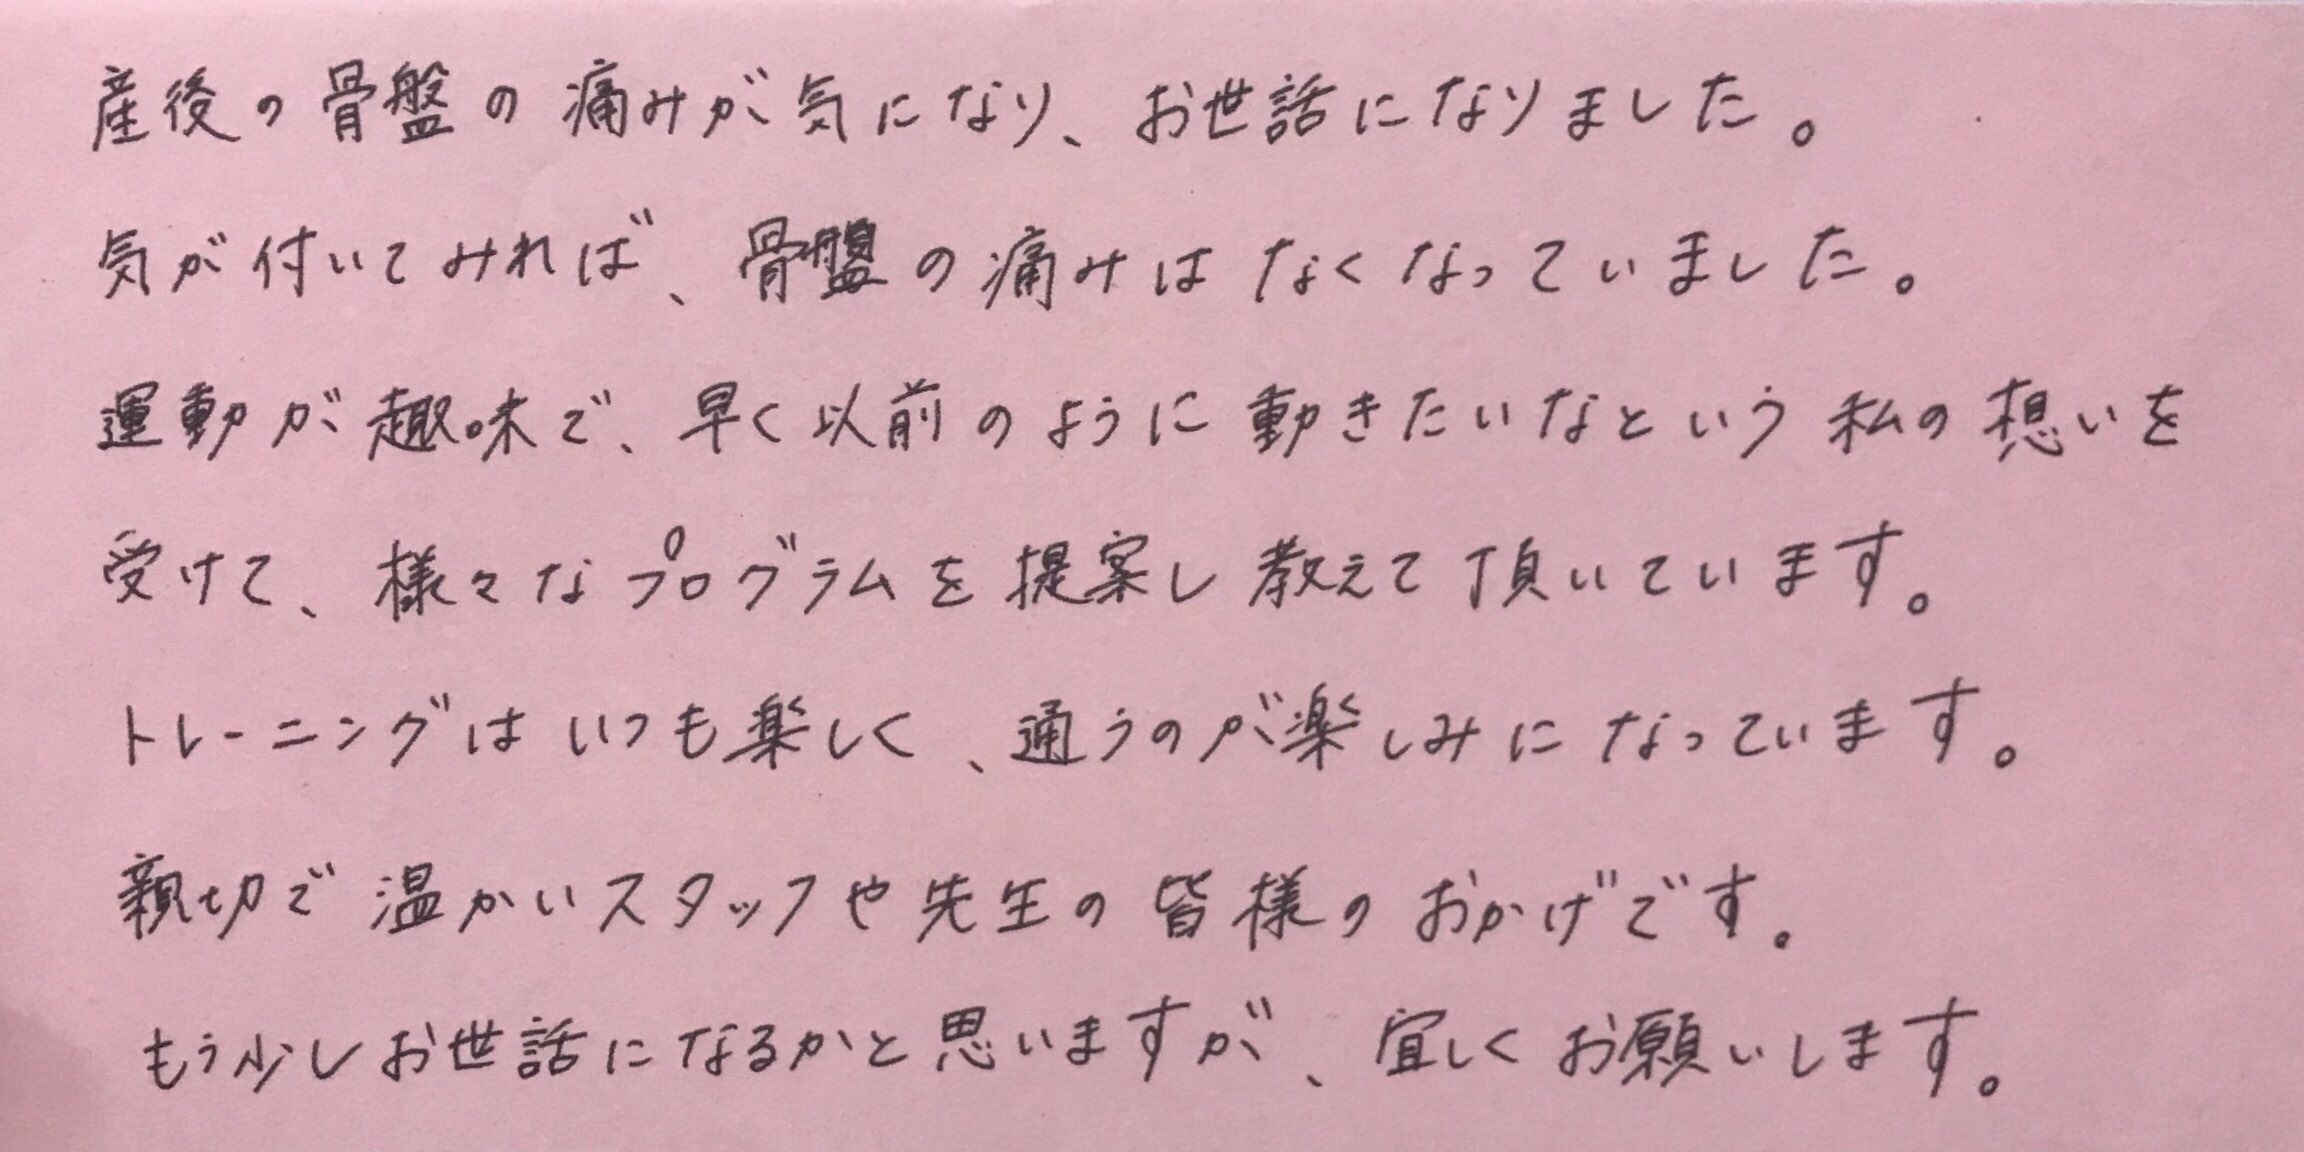 産後の骨盤の痛みが気になり、お世話になりました。
気が付いてみれば、骨盤の痛みはなくなっていました。
運動が趣味で、早く以前のように動きたいなという私の想いを
受けて、様々なプログラムを提案し教えて頂いています。
トレーニングはいつも楽しく、通うのが楽しみになっています。
親切で温かいスタッフや先生の皆様のおかげです。
もう少しお世話になるかと思いますが、宜しくお願いします。